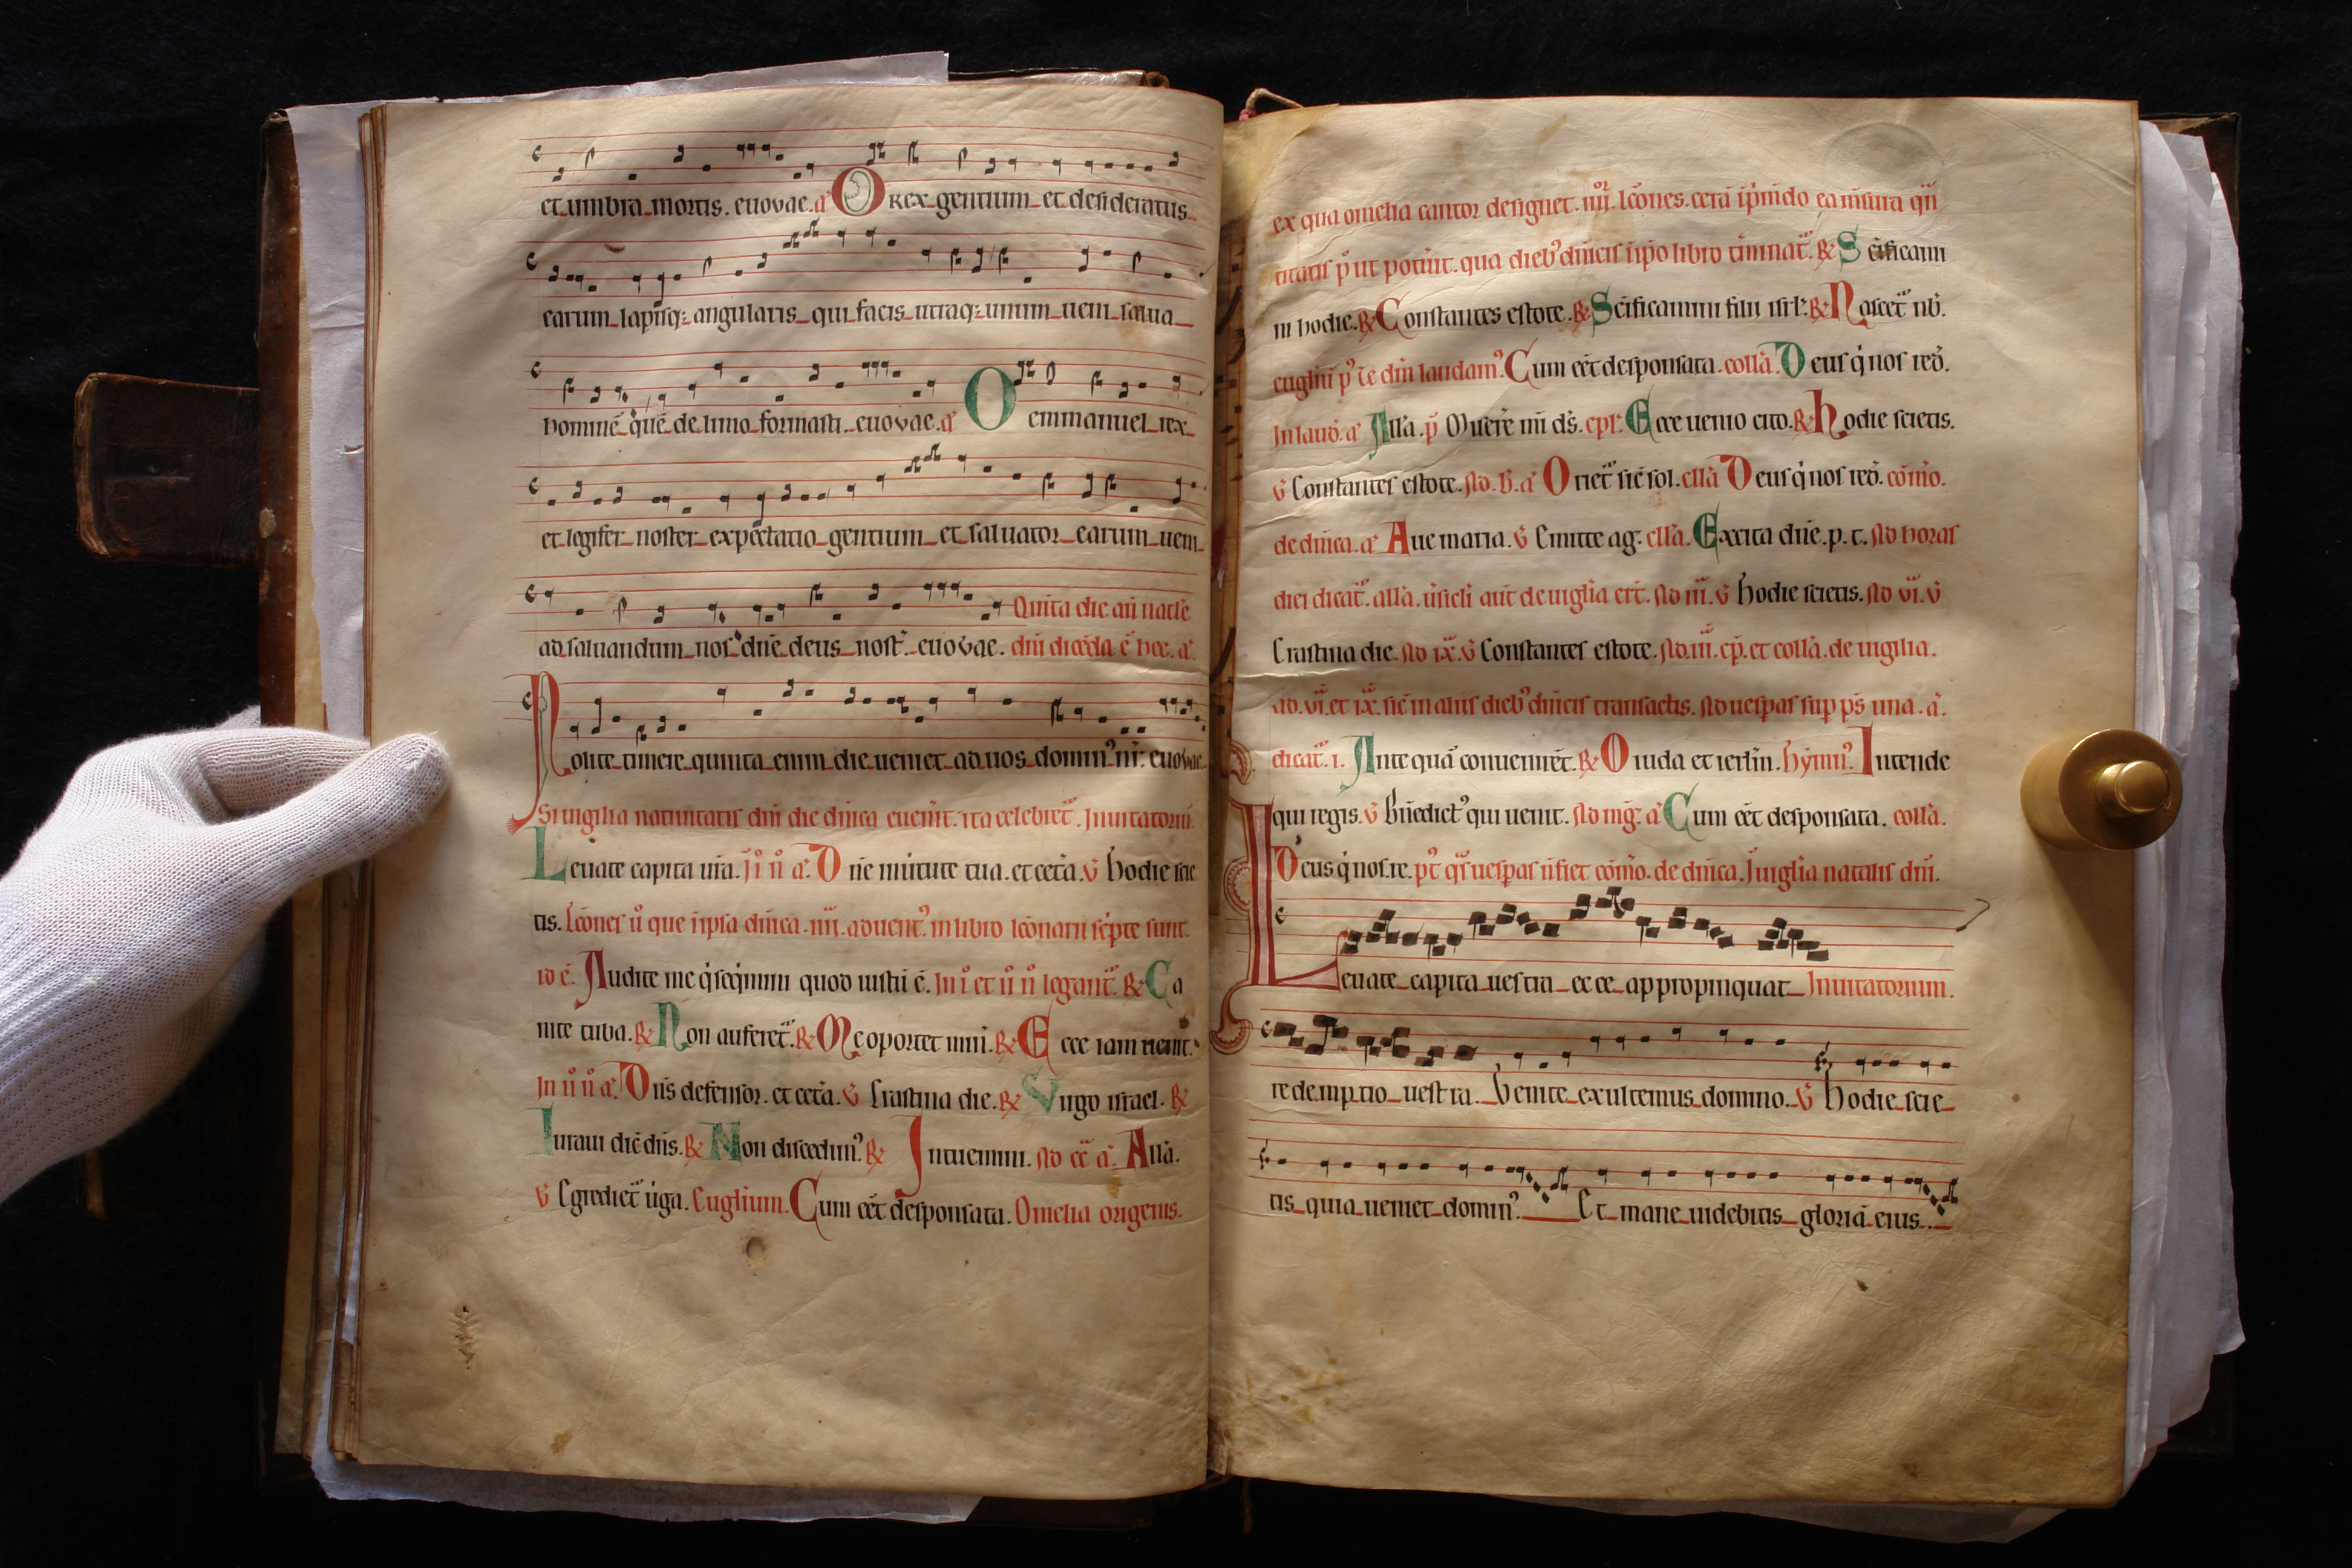 et umbra mortis. euovae. a᷎ O rex gentium et desideratus
earum lapisq; angularis qui facis utraq; unum ueni salua
hominē quē de limo formasti. euovae. a᷎ O emmanuel rex
et legifer noster expectatio gentium et saluator earum ueni
Quita die añ natł'e
ad saluandum nos dn̄e deus nost̄. euovae. dn̄i dicēda ē hec. a᷎
Nolite timere quinta enim die ueniet ad uos domin᷒ nr̄. euovae
Si uigilia natiuitatis dn̄i die dn̄ica euen̄it. ita celebret᷑. Inuitatoriū
Leuate capita ur̄a. a᷎ Dn̄e in uirtute tua. et cet̄a. v̄ hodie scie
tis. Lc̄ones ū que in ip̄sa dn̄ica. iiii. aduent᷒. in libro lc̄onarii sc̄pte sunt.
id ē. Audite me q̄ seq̄mini quod iustū ē. In i et ii n̄ legant᷑. ℟ Ca
nite tuba. ℟ Non auferet᷑. ℟ Me oportet mini. ℟ Ecce iam uenit.
In ii n̄ a᷎ Dn̄s defensor. et cet̄a. v̄ Crastina die. ℟ Virgo israel. ℟
Iuraui dic̄ dn̄s. ℟ Non discedim᷒. ℟ Intuemini. Ad c̄c̄ a᷎ All'a.
v̄ Egrediet᷑ uirga. Euglium. Cum ēet desponsata. Omelia origenis.
ex qua omelia cantor designet. iiii. lc̄ones. ea mīsura qn̄
titatis ut potūit. qua dieb᷒ dn̄icis in ip̄o libro t̄minat᷑. ℟ Sc̄ificami
ni hodie. ℟ Constantes estote. ℟ Sc̄ificamini filii isrl'. ℟ Nascet᷑ nob̄.
euglīu p᷒ te dm̄ laudam᷒. Cum ēet desponsata. coll'a. Deus q̄ nos red̄.
In laud̄. a᷎ All'a. p̄ Miser̄e mi d̄s. cpl'. Ecce uenio cito. ℟ hodie scietis.
v̄ Constantes estote. Ad. b̄. a᷎ Oriet᷑ sic̄ sol. coll'a Deus q̄ nos red̄. cōm̄o.
de dn̄ica. a᷎ Aue maria. v̄ Emitte ag. coll'a. Excita dn̄e. p. t. Ad horas
diei dicat᷑. all'a. ūsicl'i aut̄ de uigl'ia er̄t. Ad iii. v̄ hodie scietis. Ad vi. v̄
Crastina die. Ad ix. v̄ Constantes estote. Ad. iii. cp̄. et coll'a. de uigilia.
ad. vi. et ix. sic̄ in aliis dieb᷒ dn̄icis transactis. Ad uespas sup p̄s una. a᷎
dicat᷑. i. Ante quā conuenirēt. ℟ O iuda et ierl'm. hymn᷒. Intende
qui regis. v̄ Bn̄edict᷒ qui uenit. Ad maḡ. a᷎ Cum ēet desponsata. coll'a.
Deus q̄ nos. re. pt᷒ q̄s uespas n̄ fiet cōm̄o. de dn̄ica. In uigl'ia natalis dn̄i.
Leuate capita uestra ecce appropinquat Inuitatorium.
redemptio uestra. Venite exultemus domino. v̄ hodie scie
tis quia ueniet domin᷒. Et mane uidebitis gloriā eius.